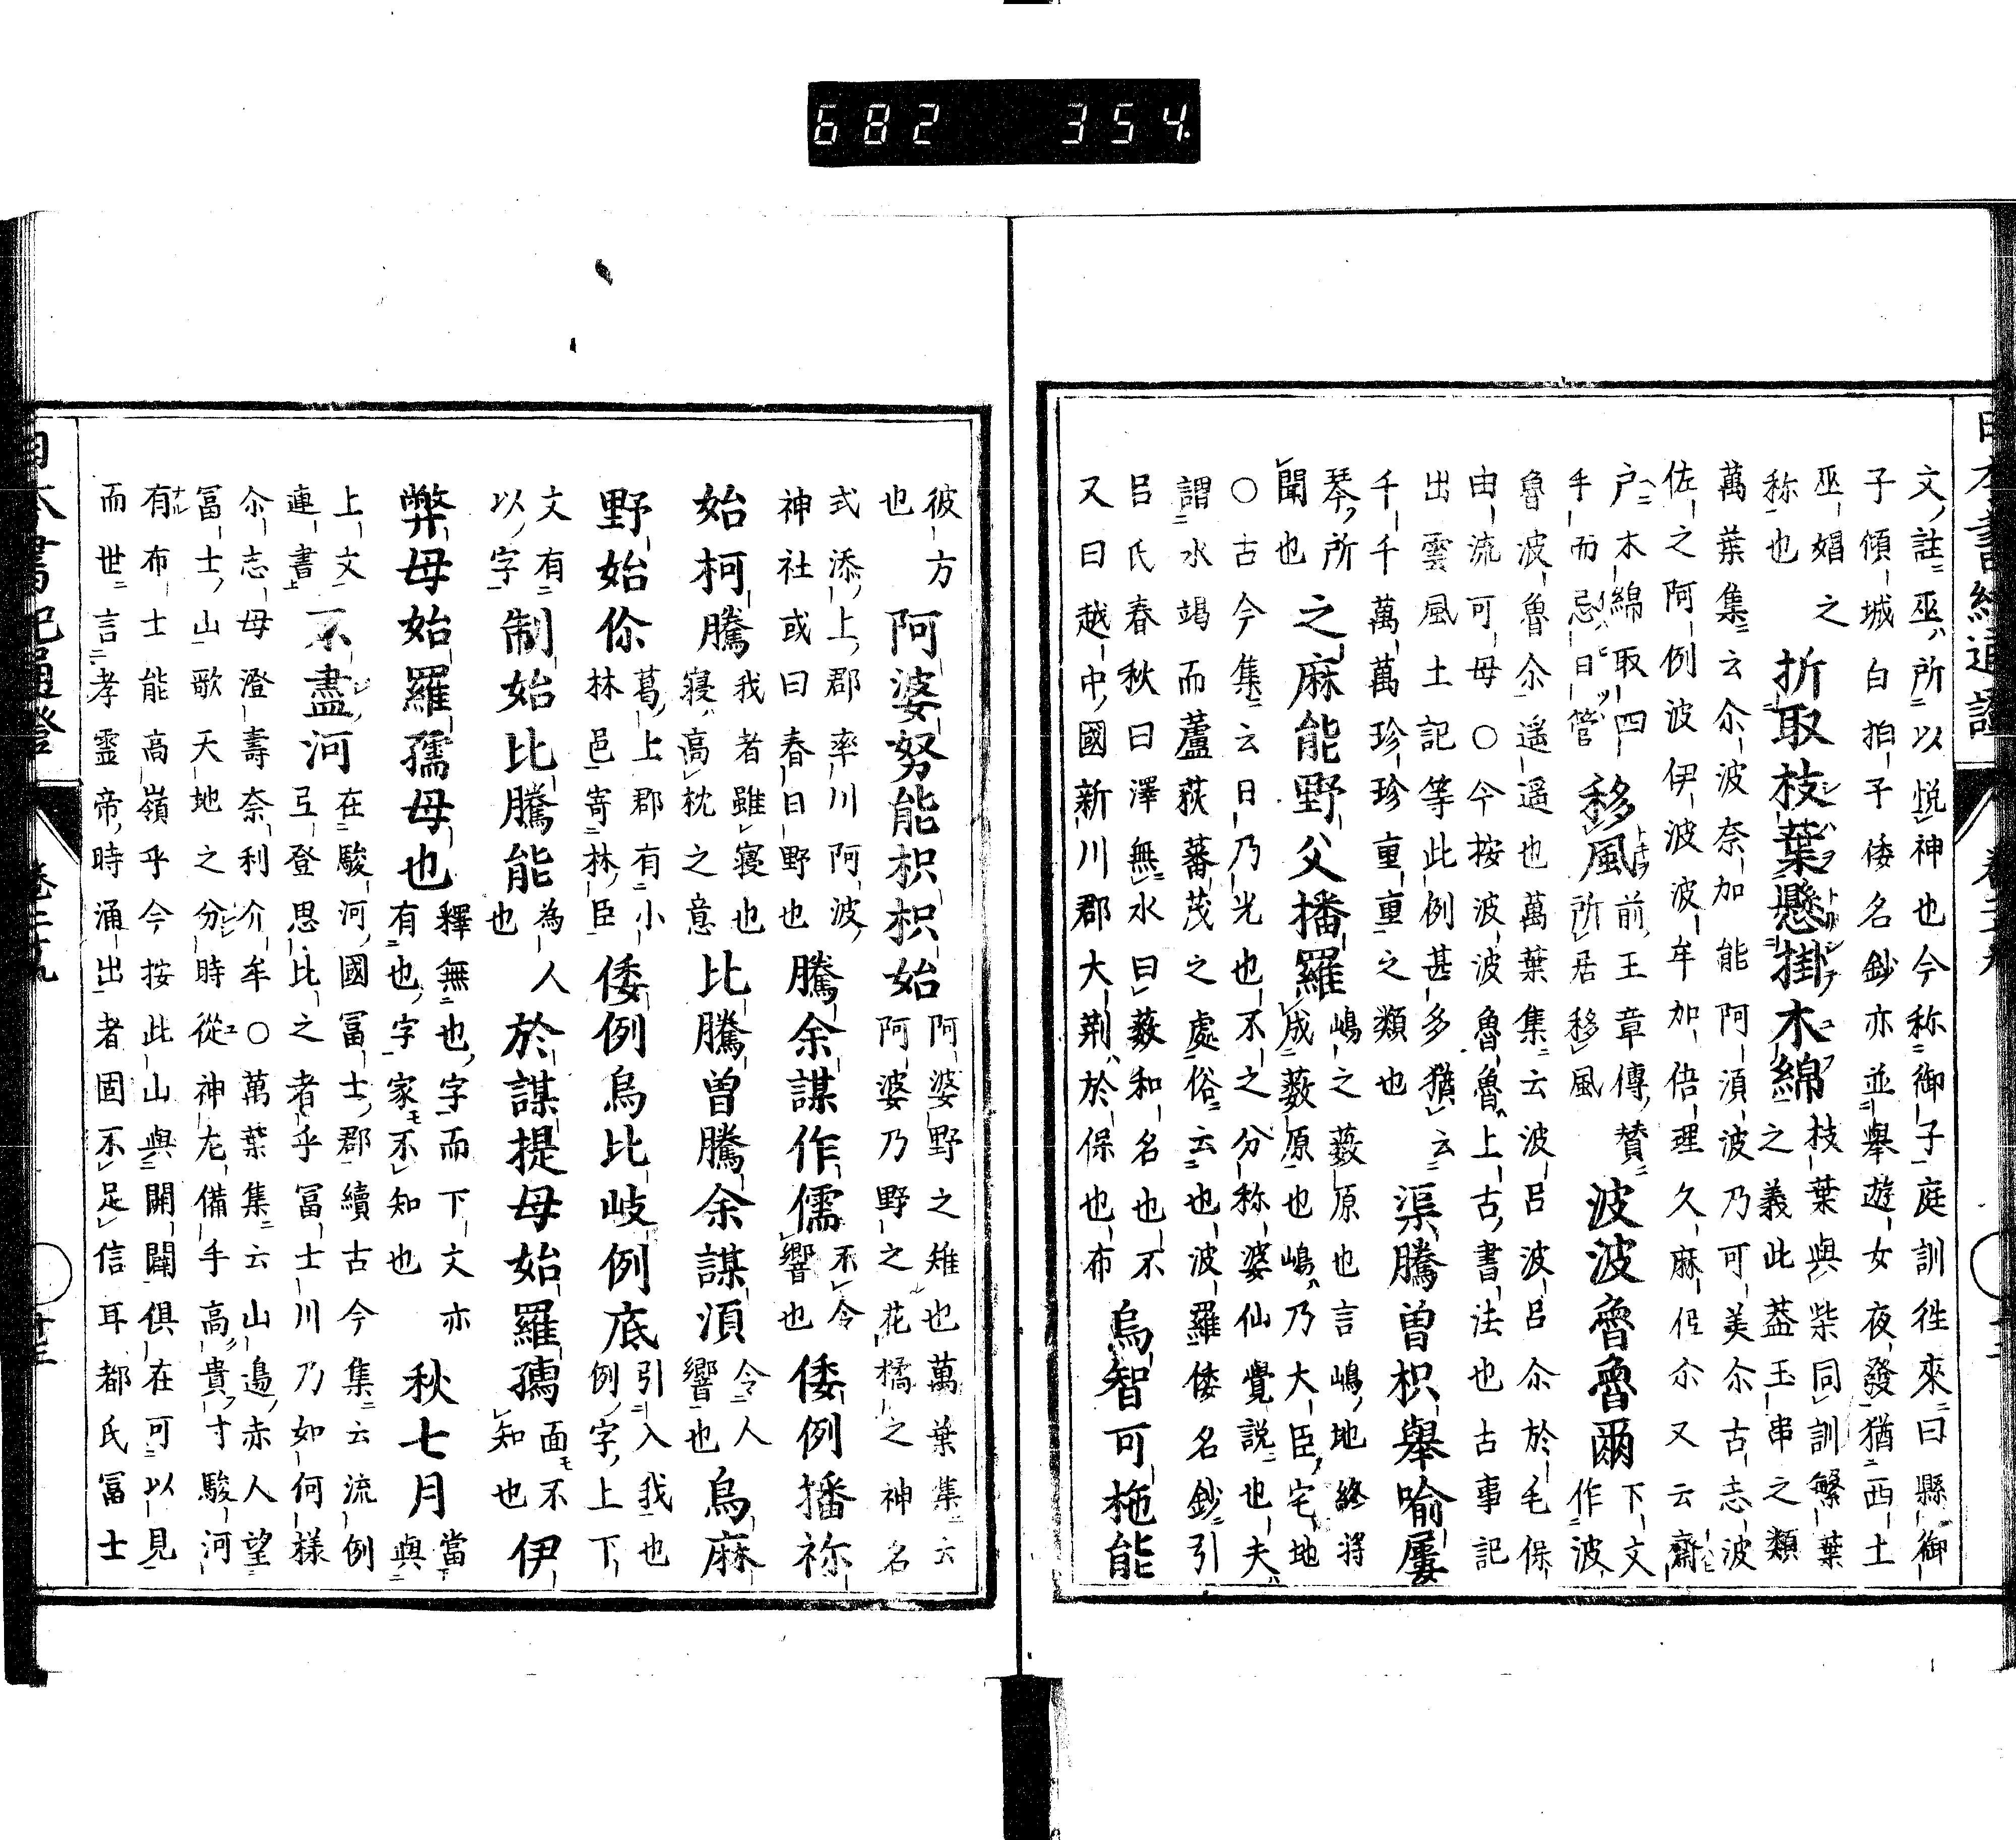 682 354
文註巫所以悦神也今称御子庭訓徃來曰縣御
子傾城白拍子倭名鈔亦並舉遊女夜發猶西土
巫娼之
称也
折取枝葉懸掛木綿
枝葉與柴同訓繁葉
之義此葢玉串之類
萬葉集云尒波奈加能阿湏波乃可美尒古志波
佐之阿例波伊波波牟加倍理久麻侄尒又云齋
户木綿取四
手而忌日管
移風
前王章傳賛
所居移風
波波魯魯爾
下文
作波
魯波魯尒遥遥也萬葉集云波呂波呂尒於毛保
由流可母○今按波波魯魯上古書法也古事記
出雲風土記等此例甚多猶云
千千萬萬珍珍重重之類也
渠騰曾枳舉喻屢
琴所
聞也
之麻能野父播羅
嶋之薮原也言嶋地終將
成薮原也嶋乃大臣宅地
○古今集云日乃光也不之分称婆仙覺説也夫
謂水竭而蘆荻蕃茂之處俗云也波羅倭名鈔引
呂氏春秋曰澤無水曰薮和名也不
又曰越中國新川郡大荆於保也布
烏智可拖能
彼方
也
阿婆努能枳枳始
阿婆野之雉也萬葉集云
阿婆乃野之花橘之神名
式添上郡率川阿波
神社或曰春日野也
騰余謀作儒
不令
響也
倭例播祢
始柯騰
我者雖寝也
寝高枕之意
比騰曽騰余謀湏
令人
響也
烏麻
野始你
葛上郡有小
林邑寄林臣
倭例烏比岐例底
引入我也
例字上下
文有
以字
制始比騰能
為人
也
於謀提母始羅孺
面不
知也
伊
弊母始羅孺母也
釋無也字而下文亦
有也字家不知也
秋七月
當
與
上文
連書
不盡河
在駿河國冨士郡續古今集云流例
弖登思比之者乎冨士川乃如何樣
尒志母澄壽奈利介牟○萬葉集云山邉赤人望
冨士山歌天地之分時從神左備手高貴寸駿河
有布士能高嶺乎今按此山與開闢俱在可以見
而世言孝霊帝時涌出者固不足信耳都氏冨士